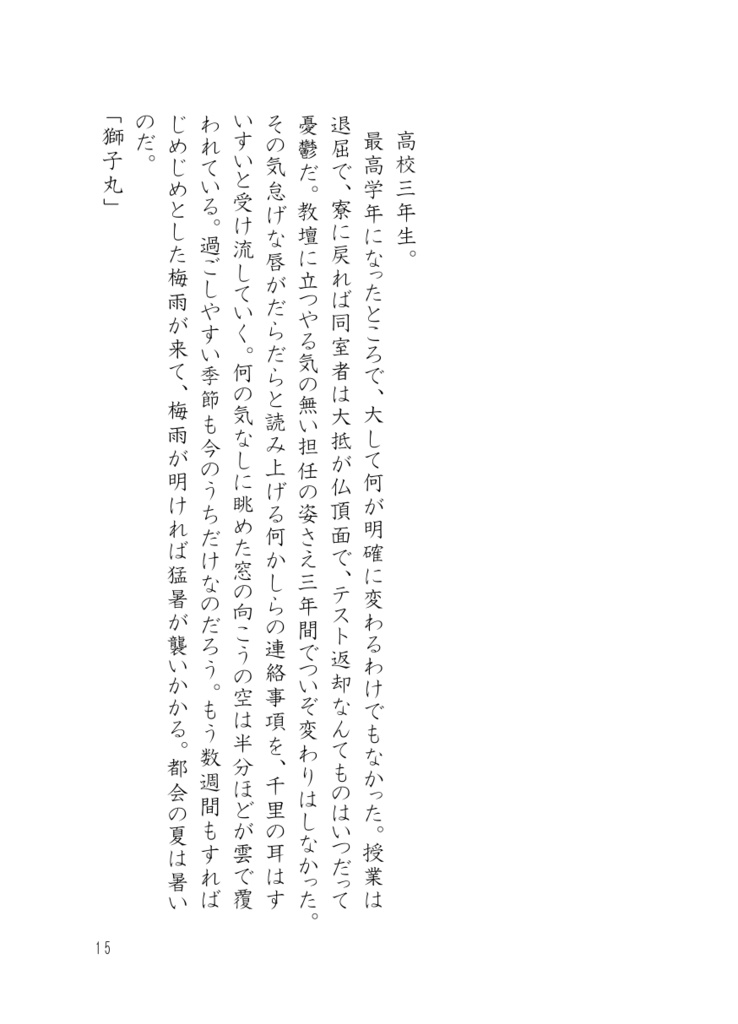 高校三年生。
最高学年になったところで、大して何が明確に変わるわけでもなかった。授業は
退屈で、寮に戻れば同室者は大抵が仏頂面で、テスト返却なんてものはいつだって
憂鬱だ。教壇に立つやる気の無い担任の姿さえ三年間でついぞ変わりはしなかった。
その気怠げな唇がだらだらと読み上げる何かしらの連絡事項を、千里の耳はす
いすいと受け流していく。何の気なしに眺めた窓の向こうの空は半分ほどが雲で覆
われている。過ごしやすい季節も今のうちだけなのだろう。もう数週間もすれば
じめじめとした梅雨が来て、梅雨が明ければ猛暑が襲いかかる。都会の夏は暑い
のだ。
「獅子丸」
15